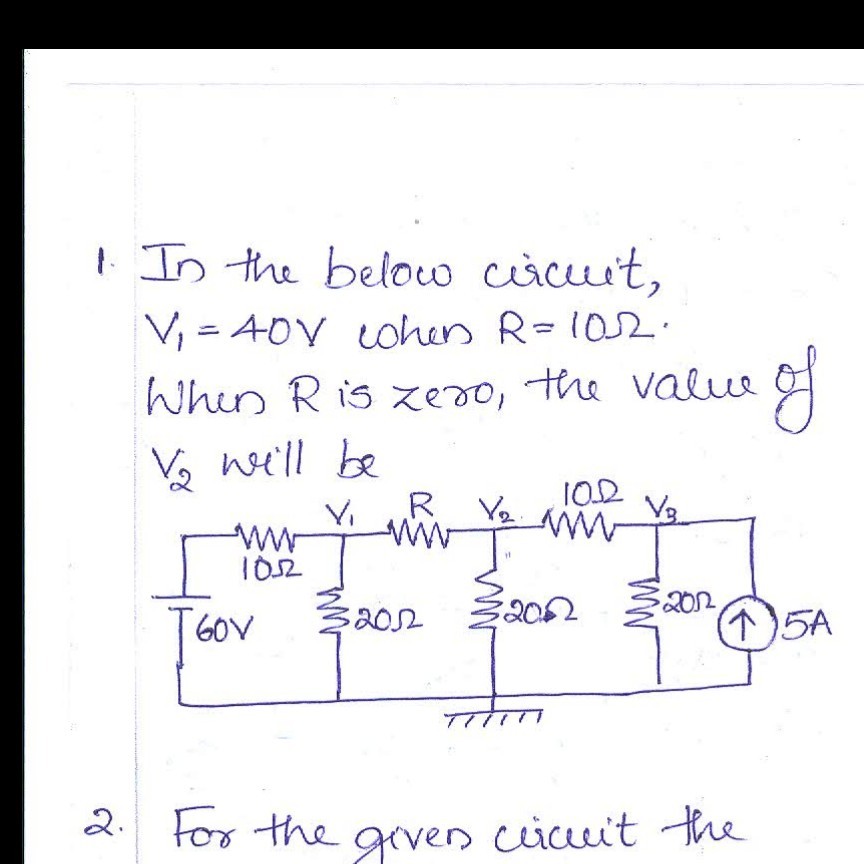 1. In the below circuit,
V₁ = 40V when R = 10Ω.
When R is zero, the value of
V₂ will be
10Ω
V₁ R V₂ V₃
10Ω
60V 20Ω 20Ω 20Ω 5A
2. For the given circuit the